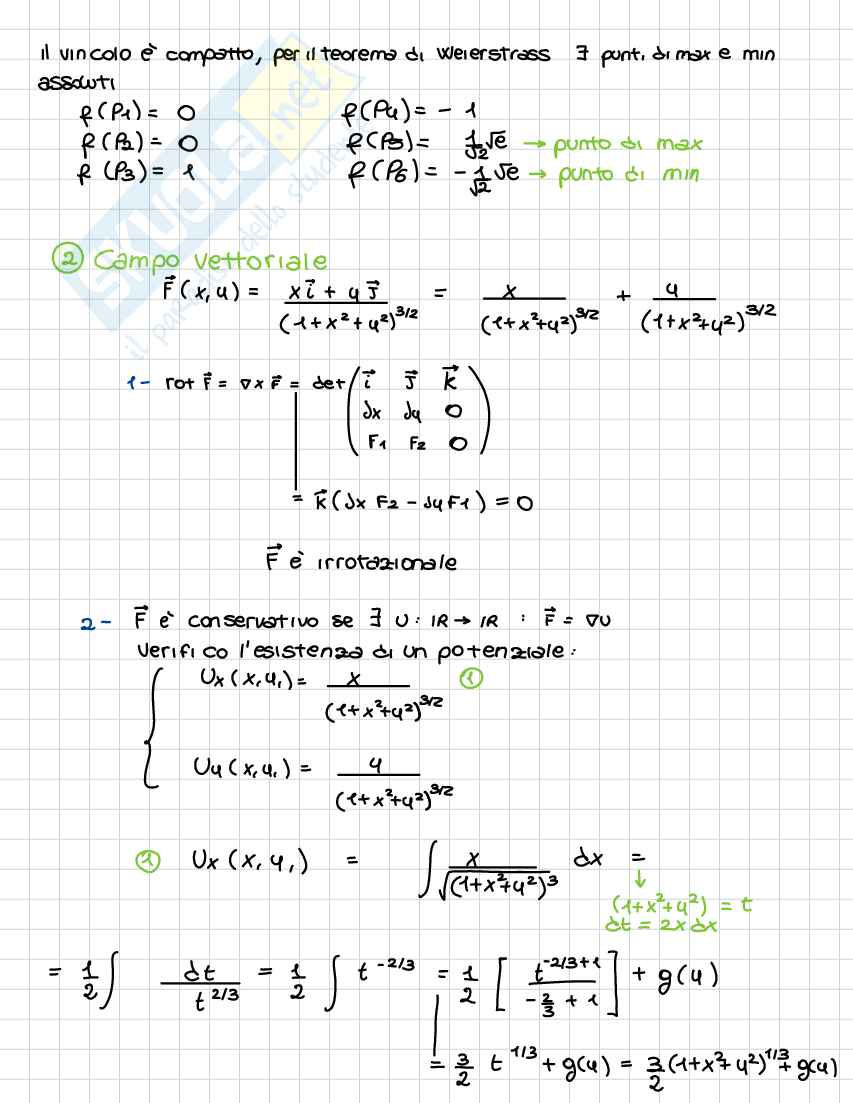 il vincolo è compatto, per il teorema di Weierstrass ∃ punti di max e min
assoluti
f(P1) = 0 f(P4) = - 1
f(P2) = 0 f(P5) = 1/√2 √e → punto di max
f(P3) = 1 f(P6) = - 1/√2 √e → punto di min
SKUOLA.net
il paradiso dello studente
② Campo vettoriale
F⃗(x,y) = (x i⃗ + y j⃗)/(1+x²+y²)^3/2 = x/(1+x²+y²)^3/2 + y/(1+x²+y²)^3/2
1- rot F⃗ = ∇ x F⃗ = det ( i⃗ j⃗ k⃗
∂x ∂y 0
F1 F2 0 )
= k⃗ (∂x F2 - ∂y F1) = 0
F⃗ è irrotazionale
2- F⃗ è conservativo se ∃ U : IR → IR : F⃗ = ∇U
verifico l'esistenza di un potenziale:
{ Ux(x,y,) = x/(1+x²+y²)^3/2 ①
Uy(x,y,) = y/(1+x²+y²)^3/2
① Ux(x,y,) = ∫ x/√(1+x²+y²)³ dx =
↓
(1+x²+y²) = t
dt = 2x dx
= 1/2 ∫ dt/t^2/3 = 1/2 ∫ t^-2/3 = 1/2 [ t^-2/3+1 / -2/3 + 1 ] + g(y)
= 3/2 t^1/3 + g(y) = 3/2 (1+x²+y²)^1/3 + g(y)